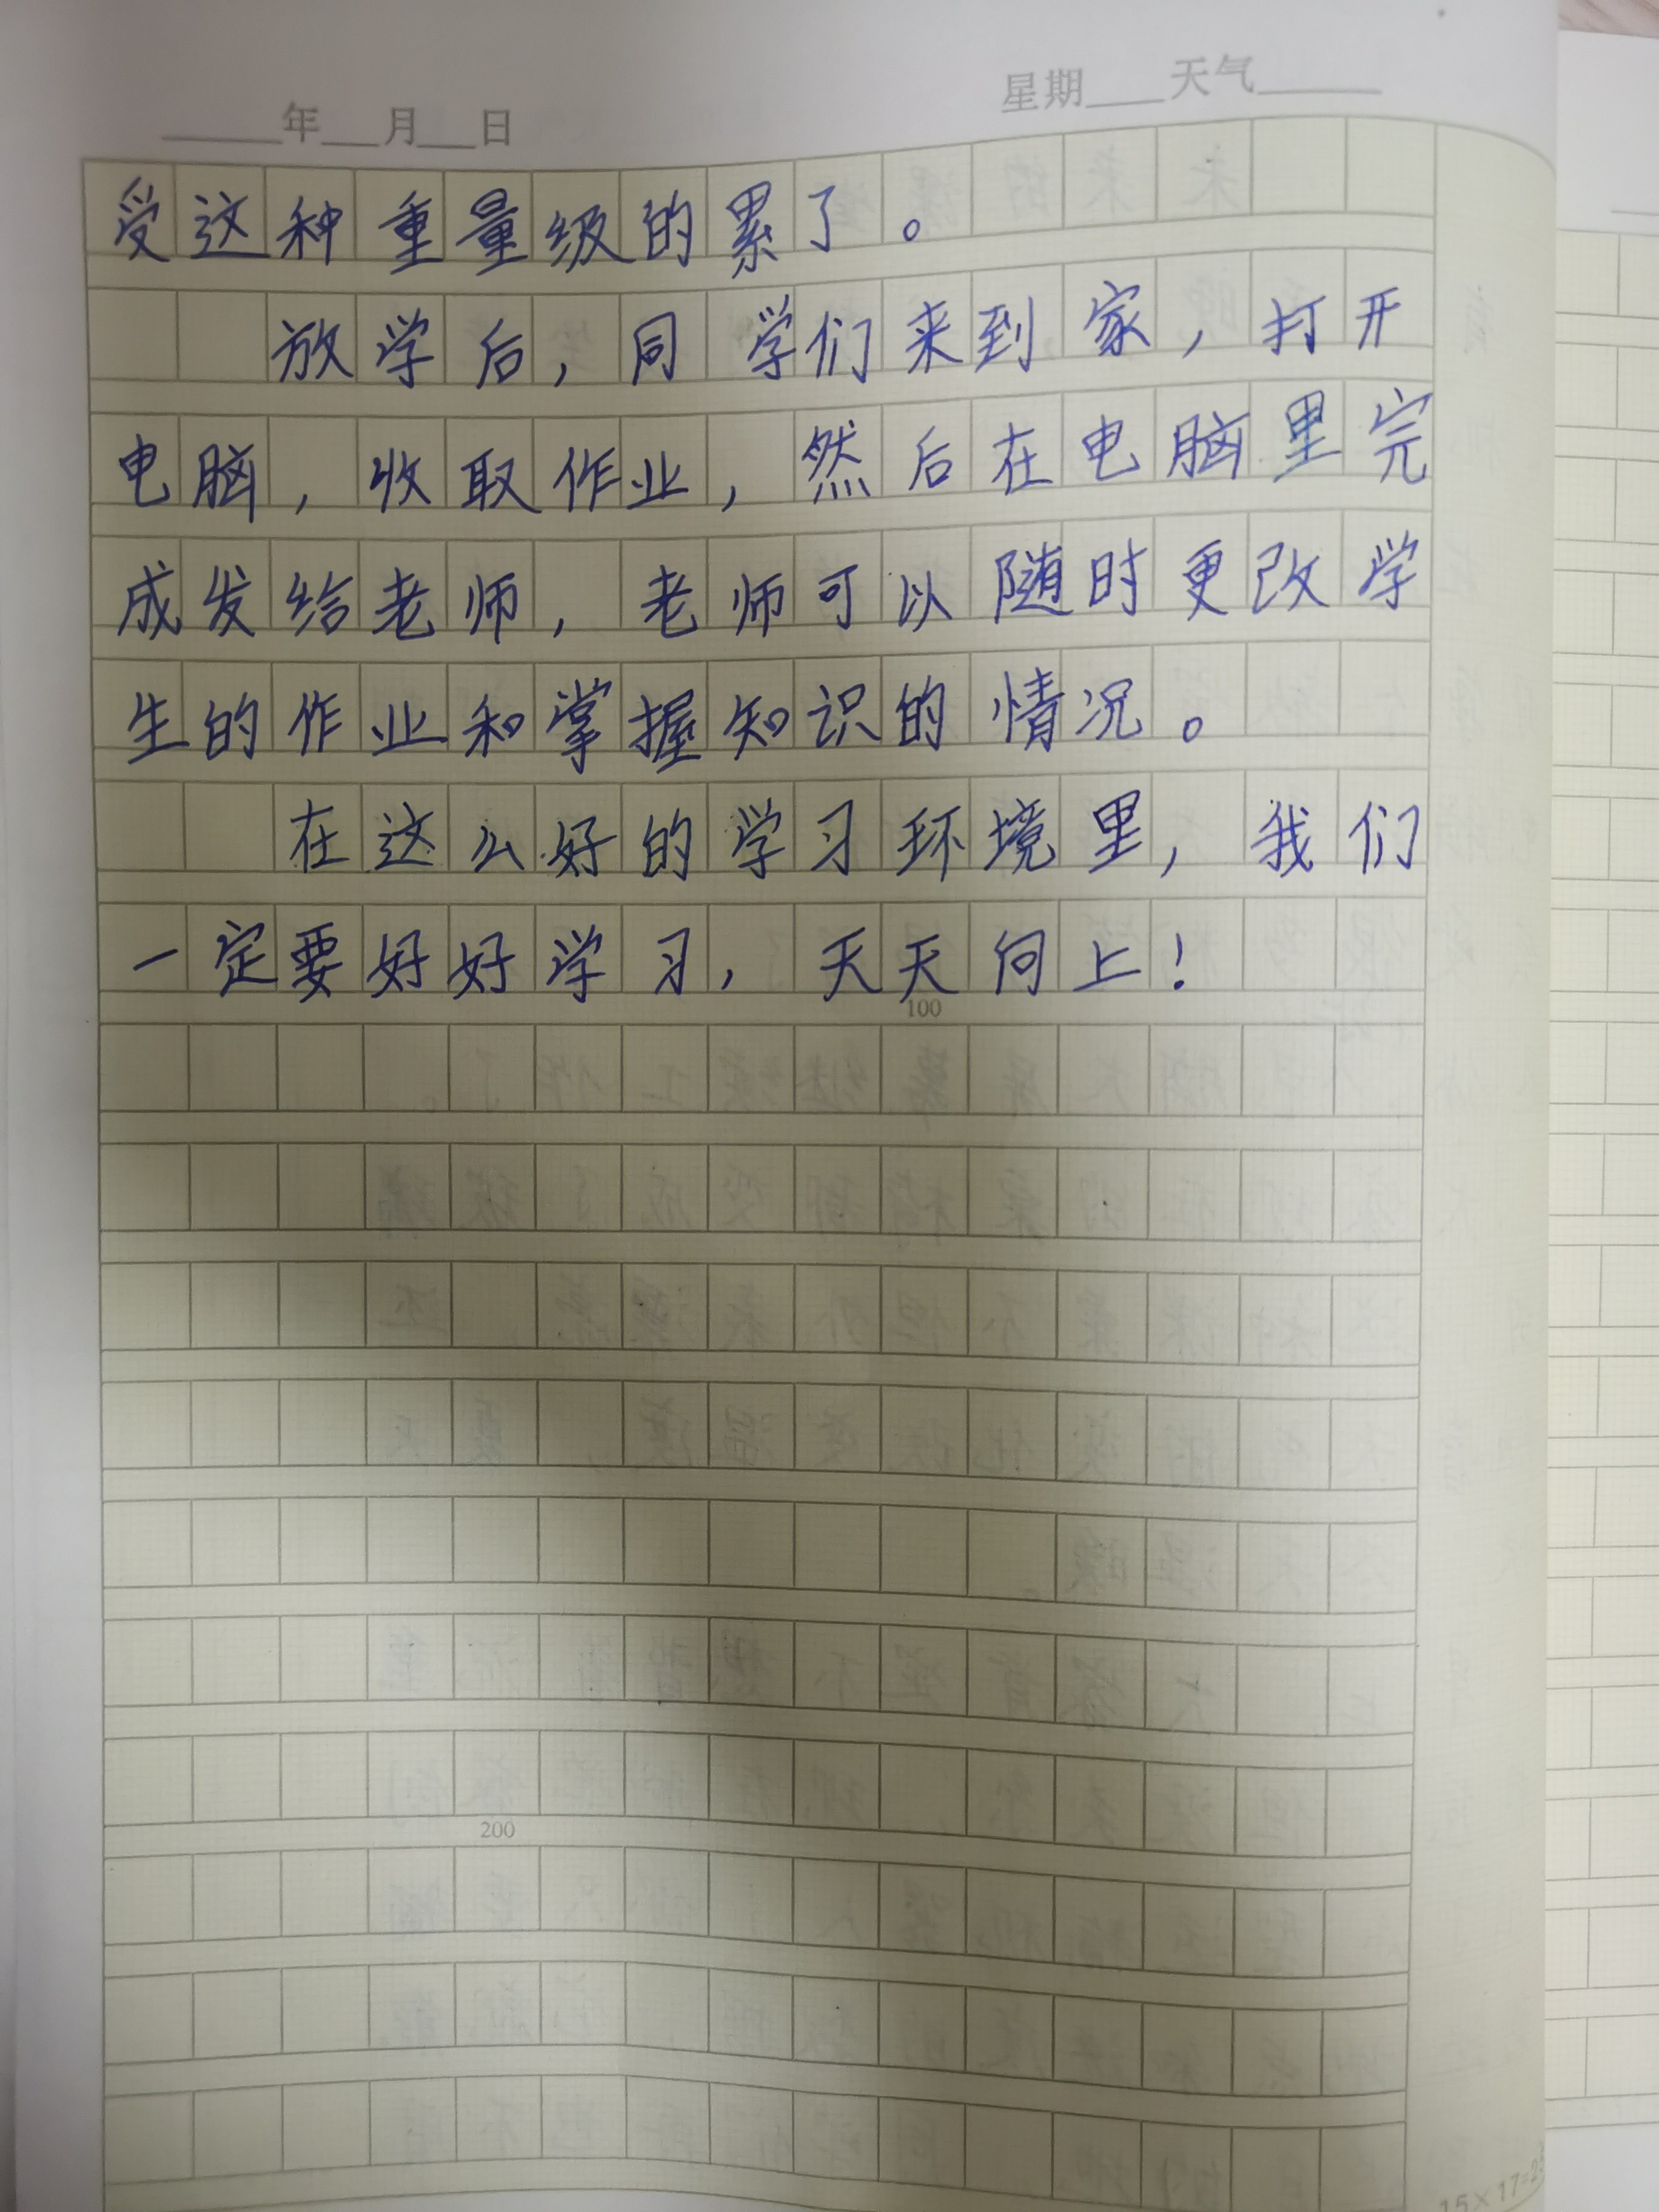 ____年__月__日
星期___天气____
受这种重量级的累了。
放学后，同学们来到家，打开
电脑，收取作业，然后在电脑里完
成发给老师，老师可以随时更改学
生的作业和掌握知识的情况。
在这么好的学习环境里，我们
一定要好好学习，天天向上！
100
200